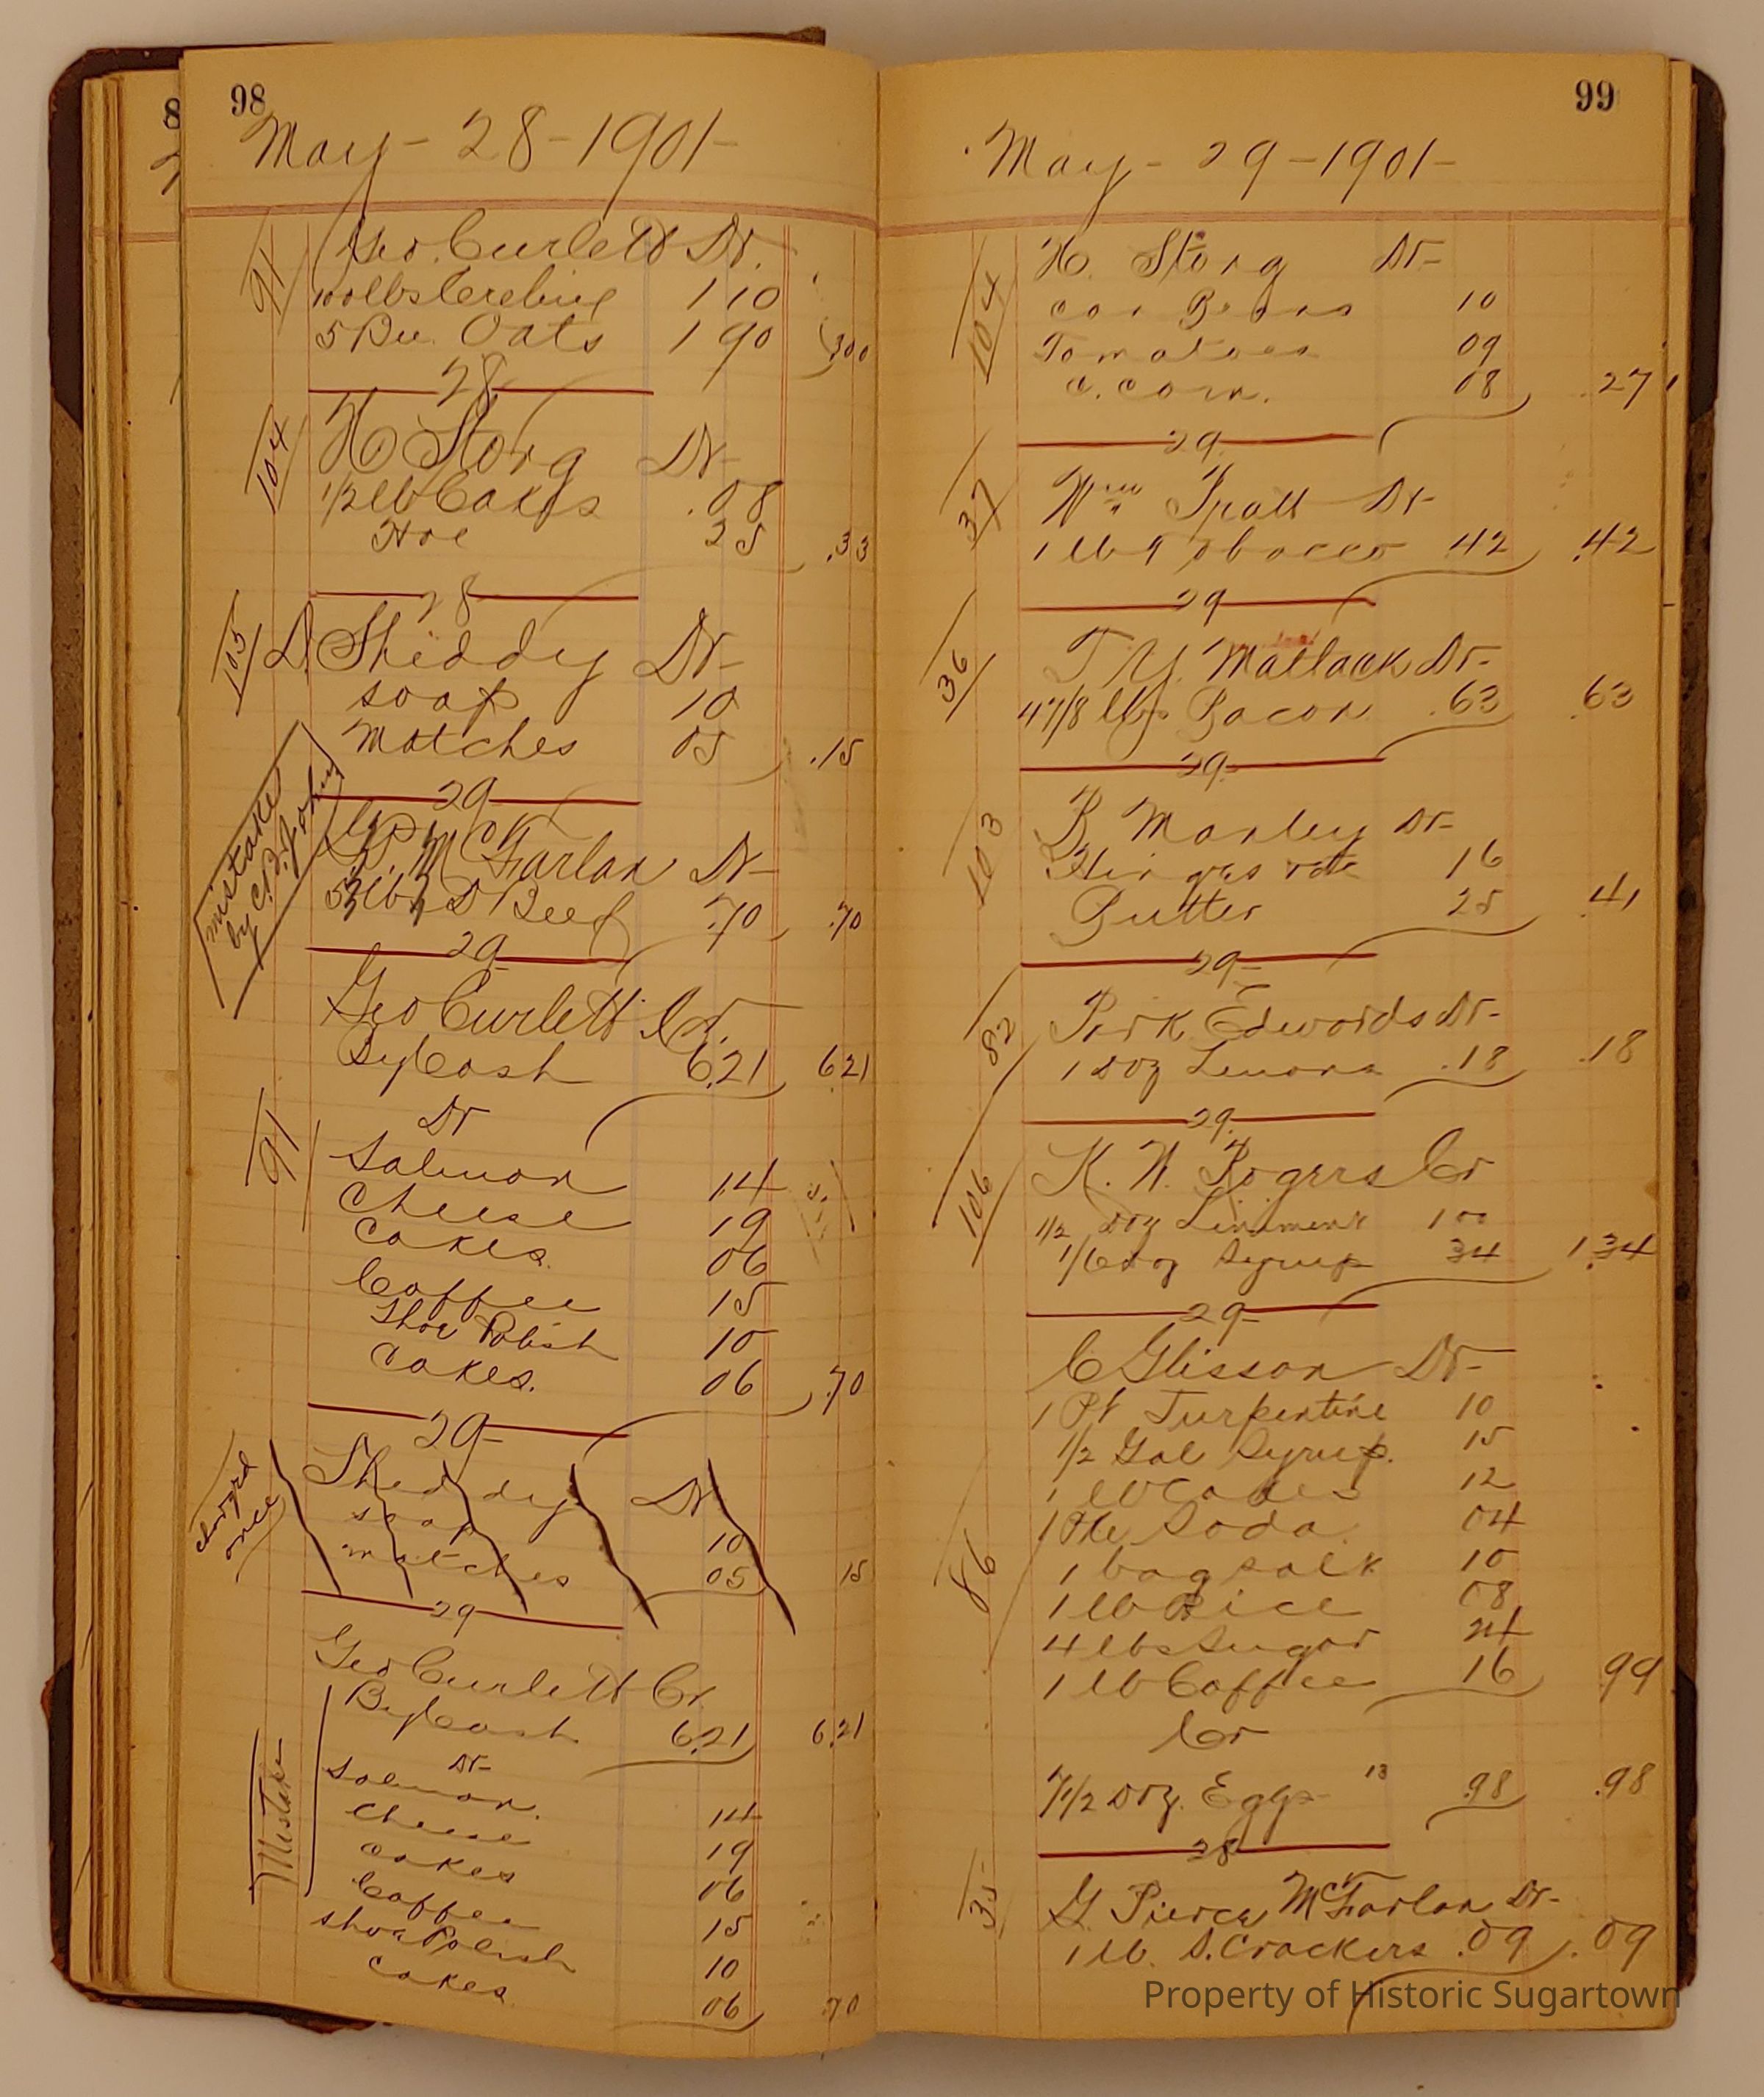 98
May - 28 - 1901 -
91
Geo. Curlett Dr.
100 lbs 1 10
5 Bu. Oats 1 90 3 00
28
104
H Storg Dr-
1/2 lb Cakes .08
Hoe 25 .33
28
105
D. Sheddy Dr-
soap 10
Matches 05 .15
29
mistake
by C.P. John
G.P. McFarlan Dr-
lbs D Beef .70 .70
29
Geo Curlett Cr.
By Cash 6.21 6.21
91
Dr
Salmon 14
Cheese 19
Cakes. 06
Coffee 15
Shoe Polish 10
Cakes. 06 .70
29-
charged
once
Sheddy Dr
soap 10
matches 05 15
29
Geo Curlett Cr.
By Cash 6.21 6.21
Mistake
Dr-
Salmon. 14
Cheese 19
cakes 06
Coffee 15
Shoe Polish 10
cakes 06 .70
8
7
99
May - 29 - 1901 -
104
H. Storg Dr-
can Beans 10
Tomatoes 09
c. corn. 08 .27
29.
37
Wm Spatt Dr-
1 lb Tobacco .42 .42
29
36
T. Y. Matlack Dr-
4 7/8 lbs Bacon .63 .63
29-
103
B Manley Dr-
16
Butter 25 .41
29-
82
Park Edwards Dr-
1 Doz Lemons .18 .18
29.
106
K. W. Rogers Cr
1/2 Doz Liniment 1 00
1/6 doz Syrup 34 1.34
29-
86
C Glisson Dr-
1 Pt Turpentine 10
1/2 Gal Syrup. 15
1 lb Cakes 12
1 Pke Soda 04
1 bag salt 10
1 lb Rice 08
4 lbs Sugar 24
1 lb Coffee 16 .99
Cr
7 1/2 Doz. Eggs 13 .98 .98
28
35
G. Pierce McFarlan Dr-
1 lb. S. Crackers .09 .09
Property of Historic Sugartown